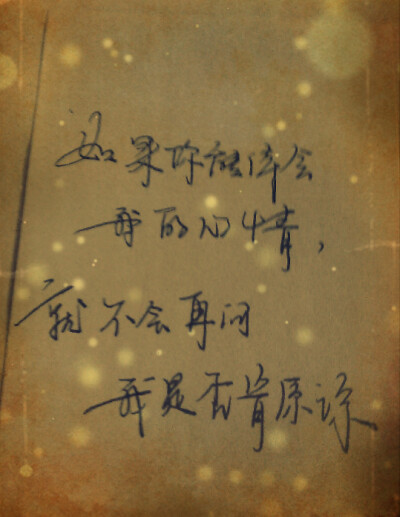 如果你能体会
我的心情，
就不会再问
我是否肯原谅